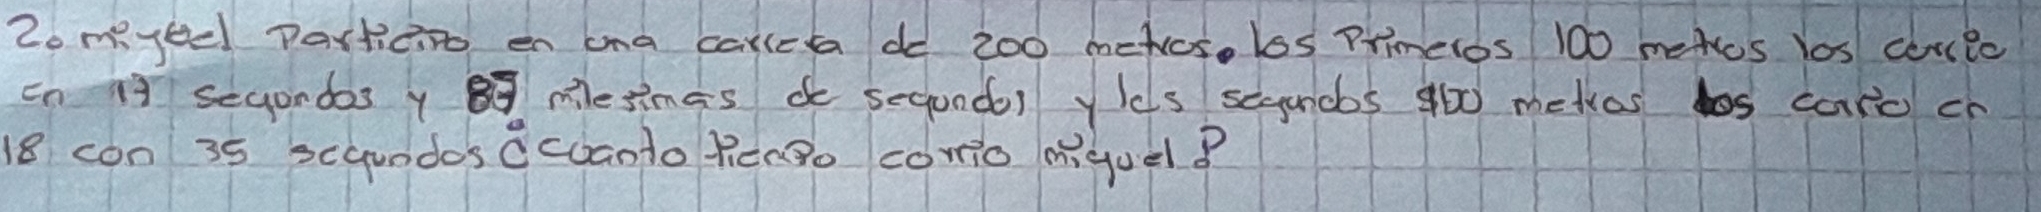 2. miguel Participo en una carrera de 200 metros. los Primeros 100 metros los corrio
en 17 segundos y 87 milesimas de segundos y los segundos 100 metros los corrio en
18 con 35 segundos ¿cuanto tiempo corrio miguel?